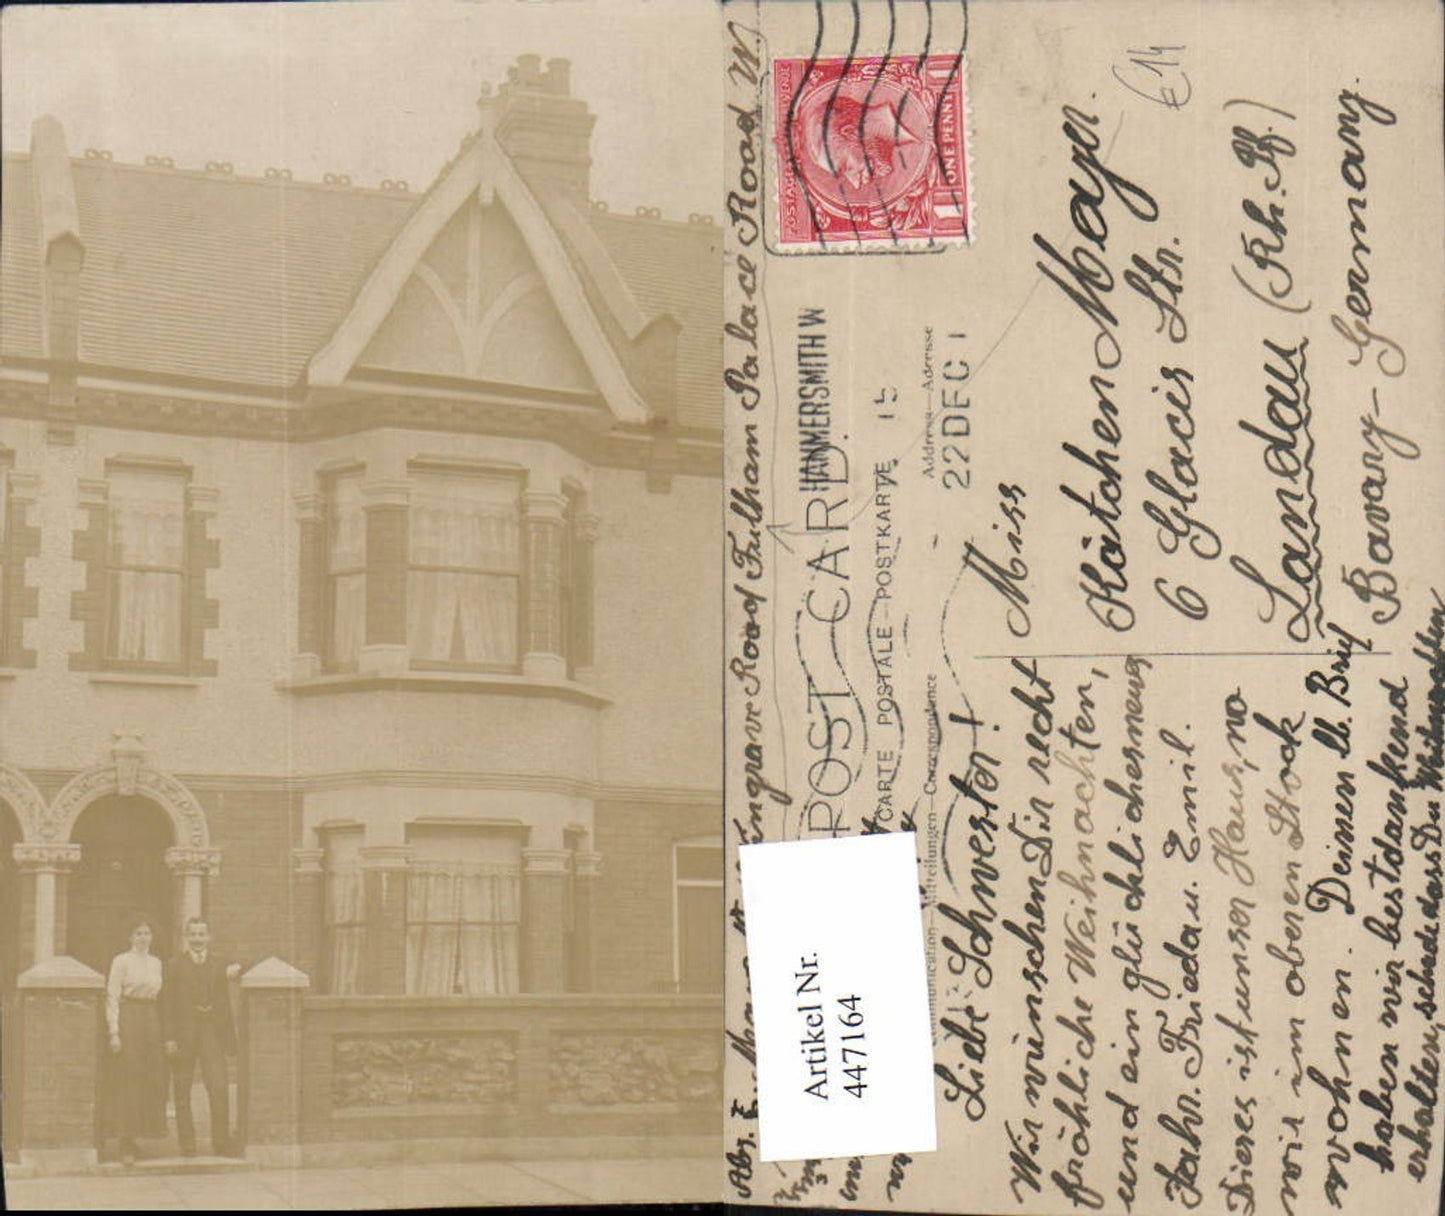 HAMMERSMITH W
15
22 DEC 1
POSTAGE REVENUE
1 ONE PENNY 1
€14
POST CARD.
CARTE POSTALE–POSTKARTE.
Communication–Mitteilungen–Correspondence
Address–Adresse
Miss
Kätchen Mayer.
6 Glacis Str.
Landau (Rh. Pf.)
Bavary – Germany.
Liebe Schwester!
Wir wünschen Dir recht
fröhliche Weihnachten,
und ein glückliches neues
Jahr. Frieda u. Emil.
Dieses ist unser Haus, wo
wir im oberen Stock
wohnen. Deinen lb. Brief
haben wir bestdankend
erhalten, schade dass Du
Abs.
Kingrave Road Fulham Palace Road W.
Artikel Nr.
447164